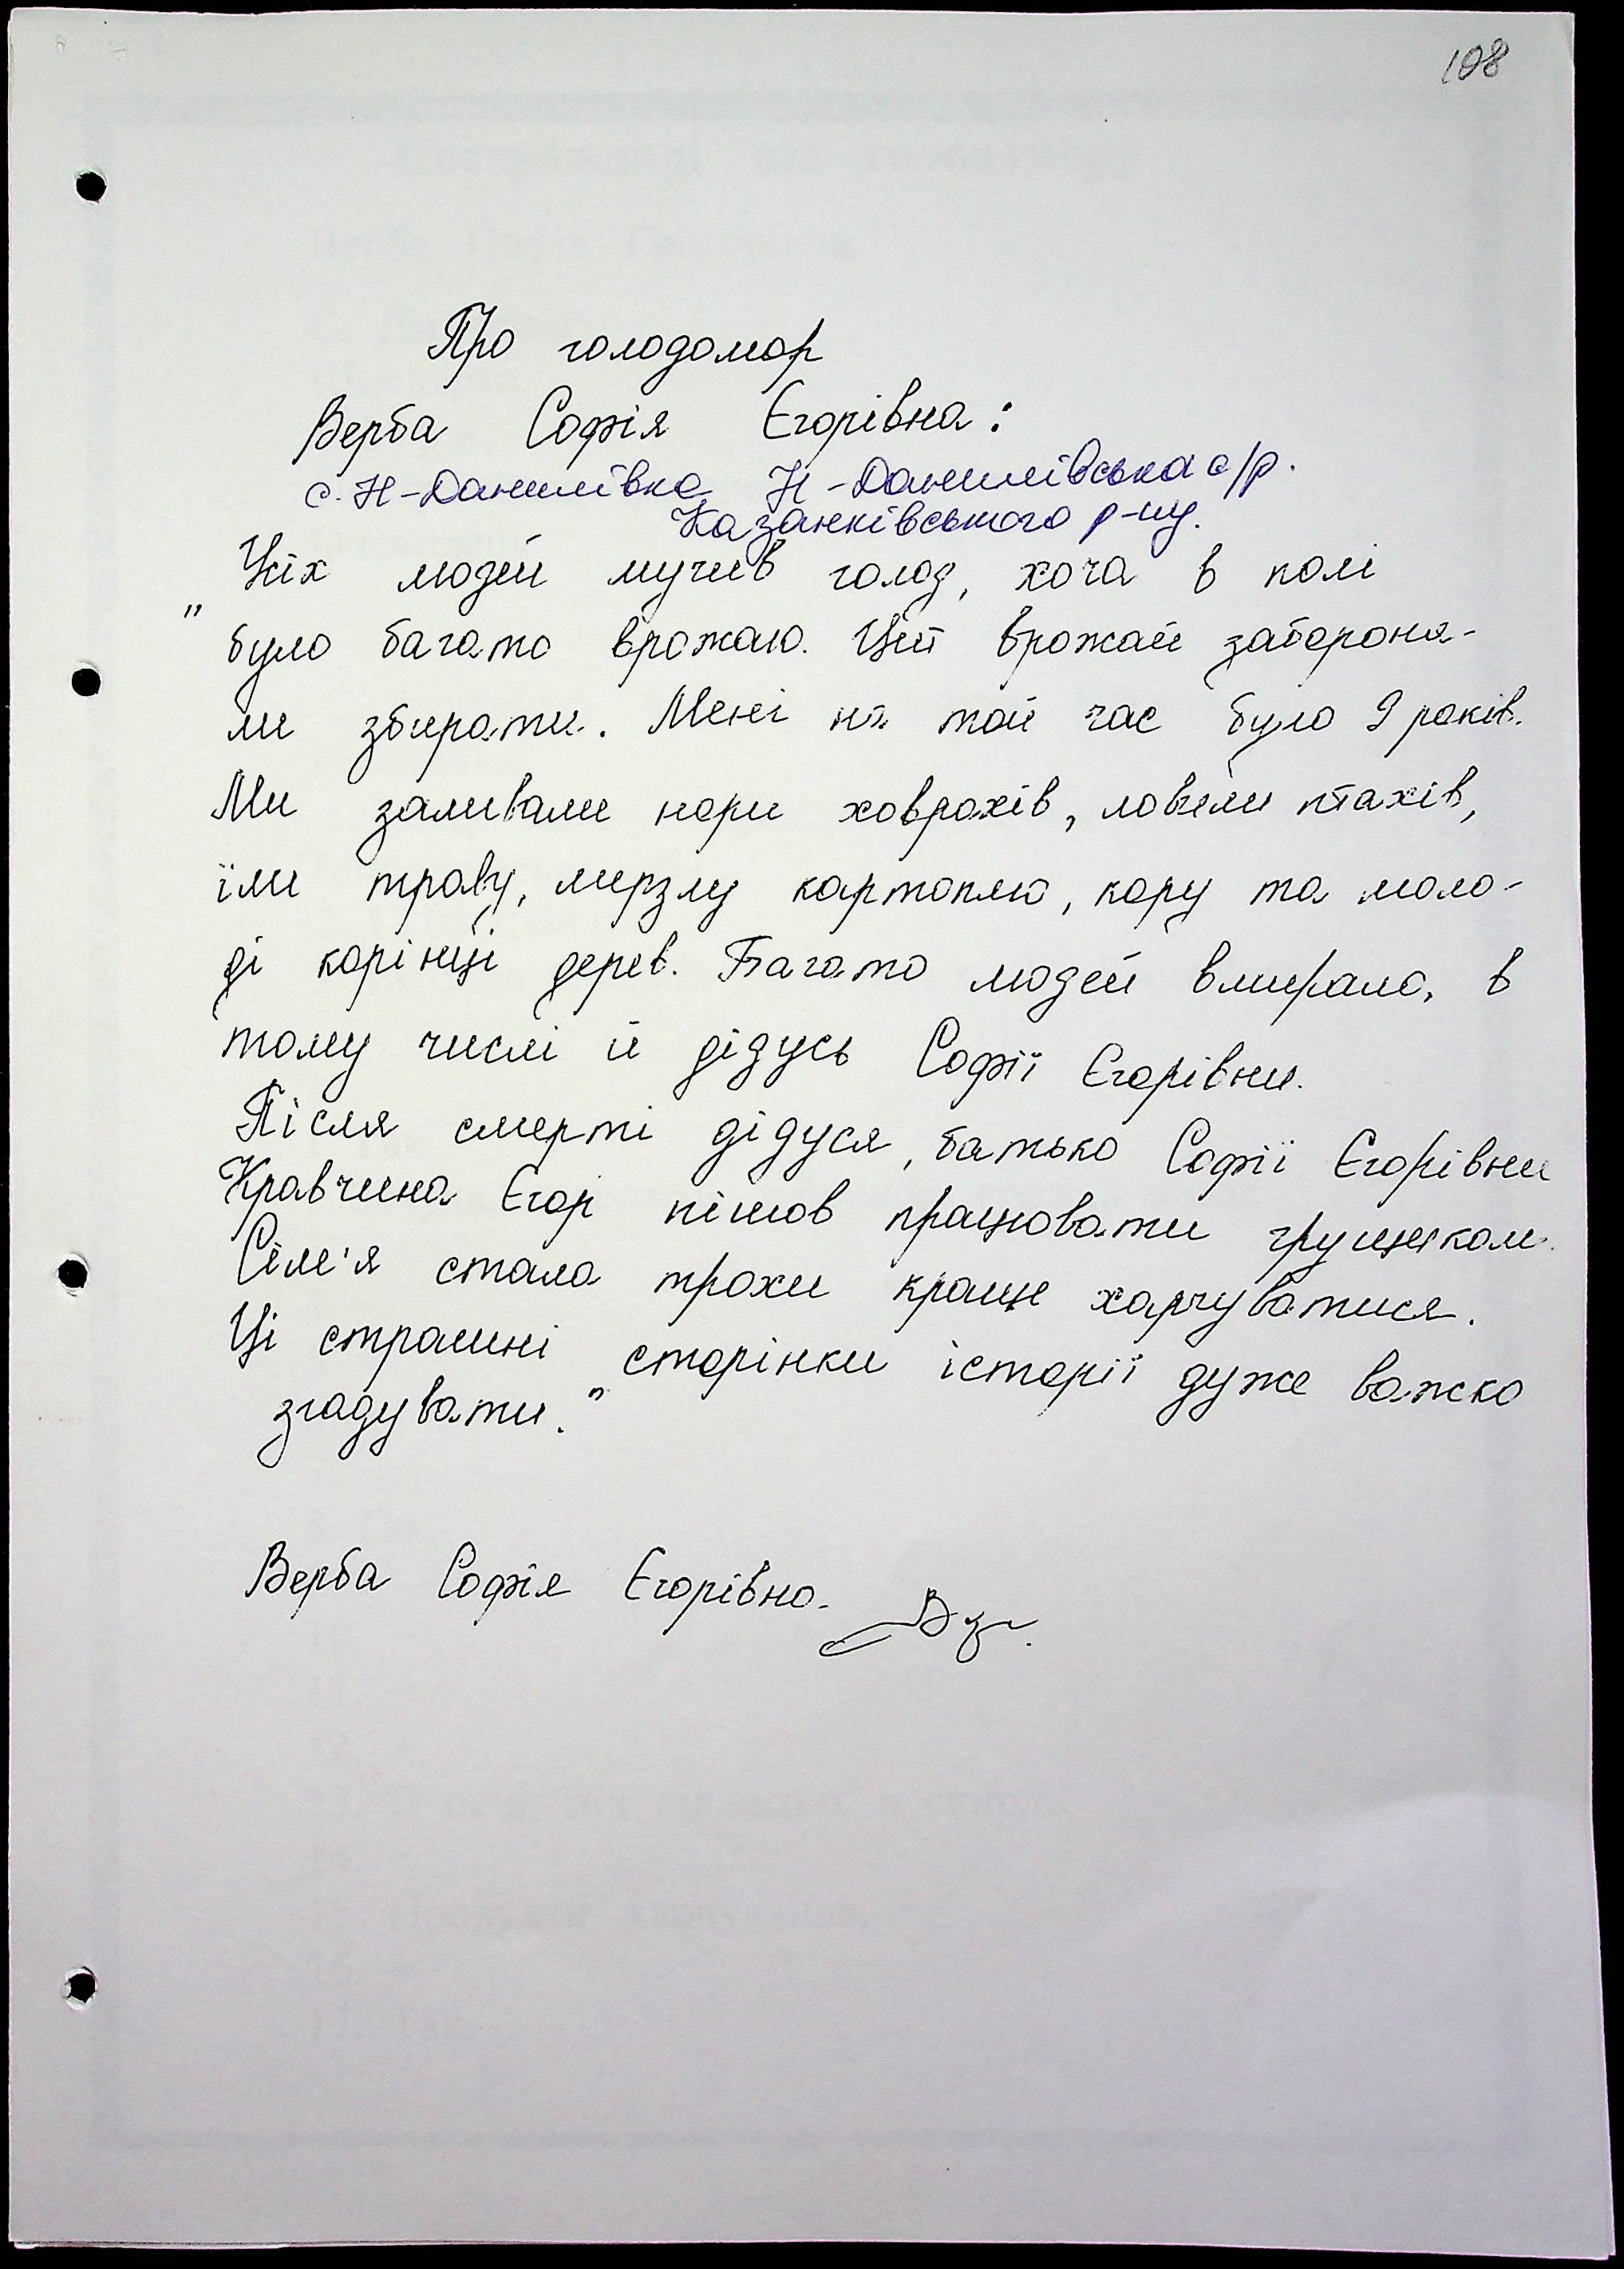 108
Про голодомор
Верба Софія Єгорівна:
с. Н-Данилівка Н-Данилівська с/р.
Казанківського р-ну.
„ Усіх людей мучив голод, хоча в полі
було багато врожаю. Цей врожай забороня-
ли збирати. Мені на той час було 9 років.
Ми заливали нори ховрахів, ловили птахів,
їли траву, мерзлу картоплю, кору та моло-
ді корінці дерев. Багато людей вмирало, в
тому числі й дідусь Софії Єгорівни.
Після смерті дідуся, батько Софії Єгорівни
Кравчина Єгор пішов працювати грущиком.
Сім'я стала трохи краще харчуватися.
Ці страшні сторінки історії дуже важко
згадувати."
Верба Софія Єгорівна.